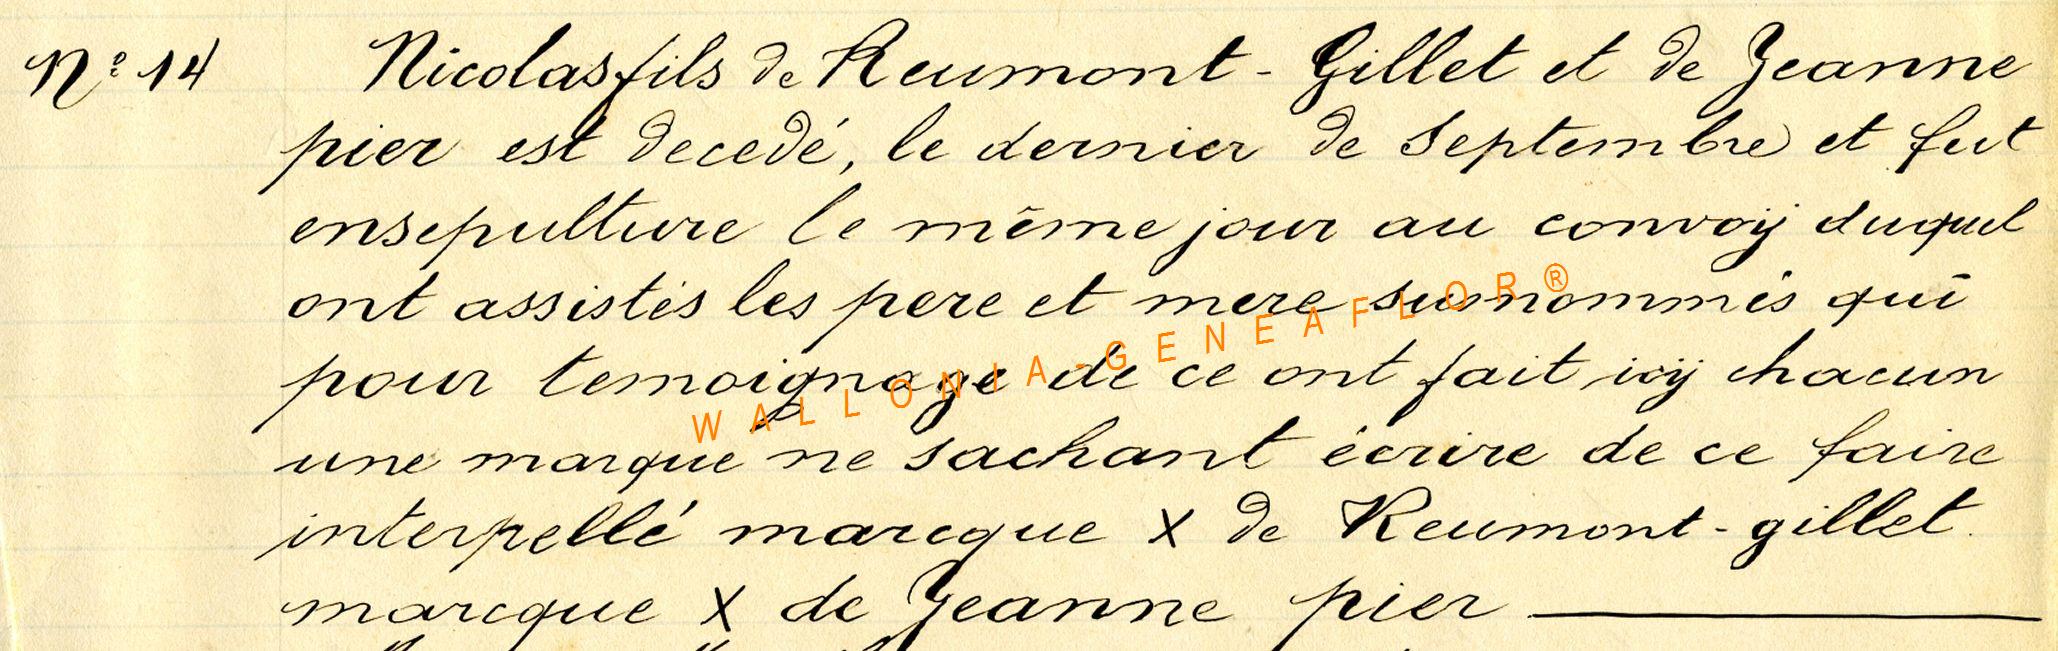 Nº 14 Nicolas fils de Reumont - Gillet et de Jeanne
pier est decedé, le dernier de Septembre et fut
ensepulture le même jour au convoÿ duquel
ont assistés les pere et mere susnommés qui
pour temoignage de ce ont fait icÿ chacun
une marque ne sachant écrire de ce faire
interpellé marcque X de Reumont - gillet
marcque X de Jeanne pier
WALLONIA-GENEAFLOR®